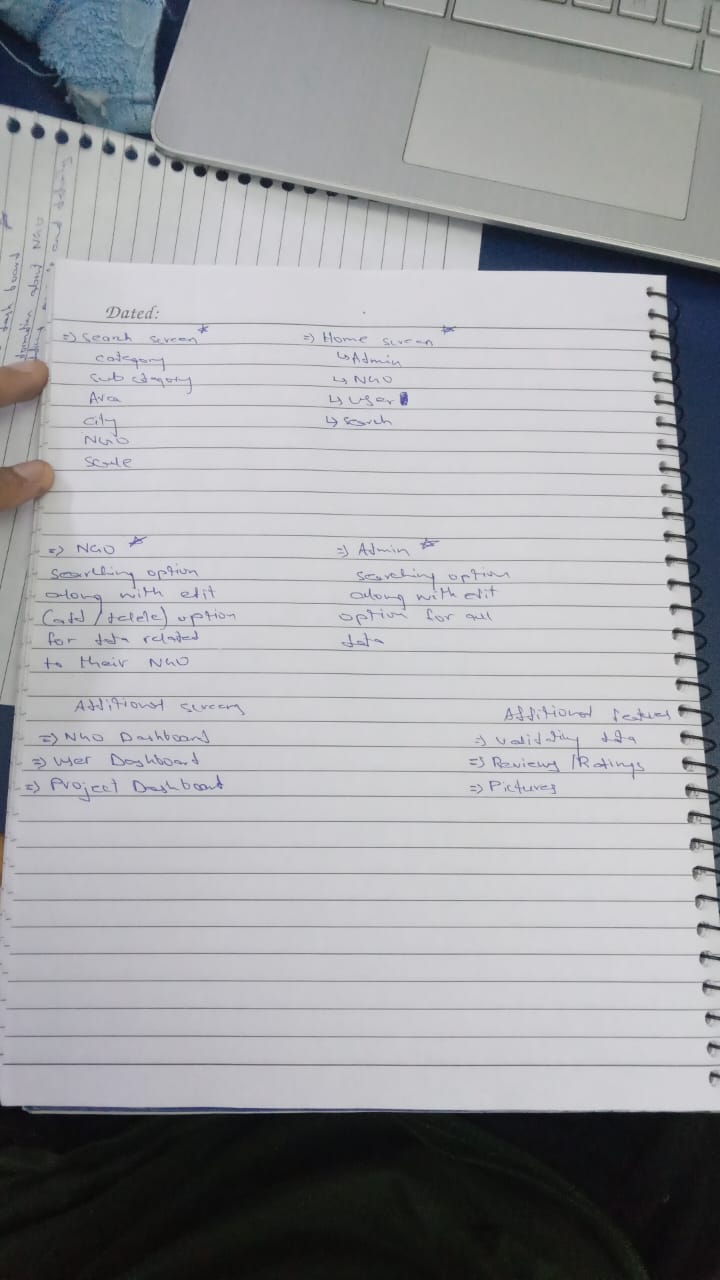 Dated:
=) Search screen *
category
sub category
Area
city
NGO
Scale
=) Home screen *
↳ Admin
↳ NGO
↳ user
↳ search
=) NGO *
searching option
along with edit
(add/delete) option
for data related
to their NGO
=) Admin *
searching option
along with edit
option for all
data
Additional screens
=) NGO Dashboard
=) user Dashboard
=) Project Dashboard
Additional features
=) validating data
=) Reviews / Ratings
=) Pictures
dash board
about NGO
and